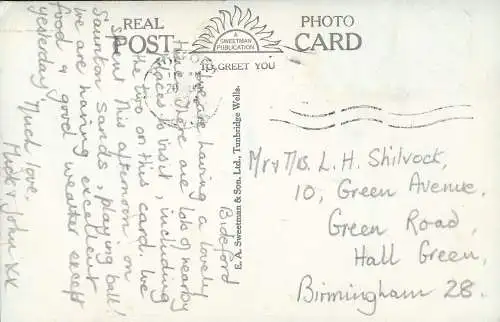 REAL PHOTO
POST CARD
A
SWEETMAN
PUBLICATION
TO GREET YOU
E. A. Sweetman & Son. Ltd., Tunbridge Wells.
Bideford
We are having a lovely
time. There are lots of nearby
places to visit, including
the two on this card. We
spent this afternoon on
Saunton Sands, playing ball!
We are having excellent
food & good weather except
yesterday. Much love,
John xx
Mr & Mrs. L. H. Shilvock,
10, Green Avenue,
Green Road,
Hall Green,
Birmingham 28.